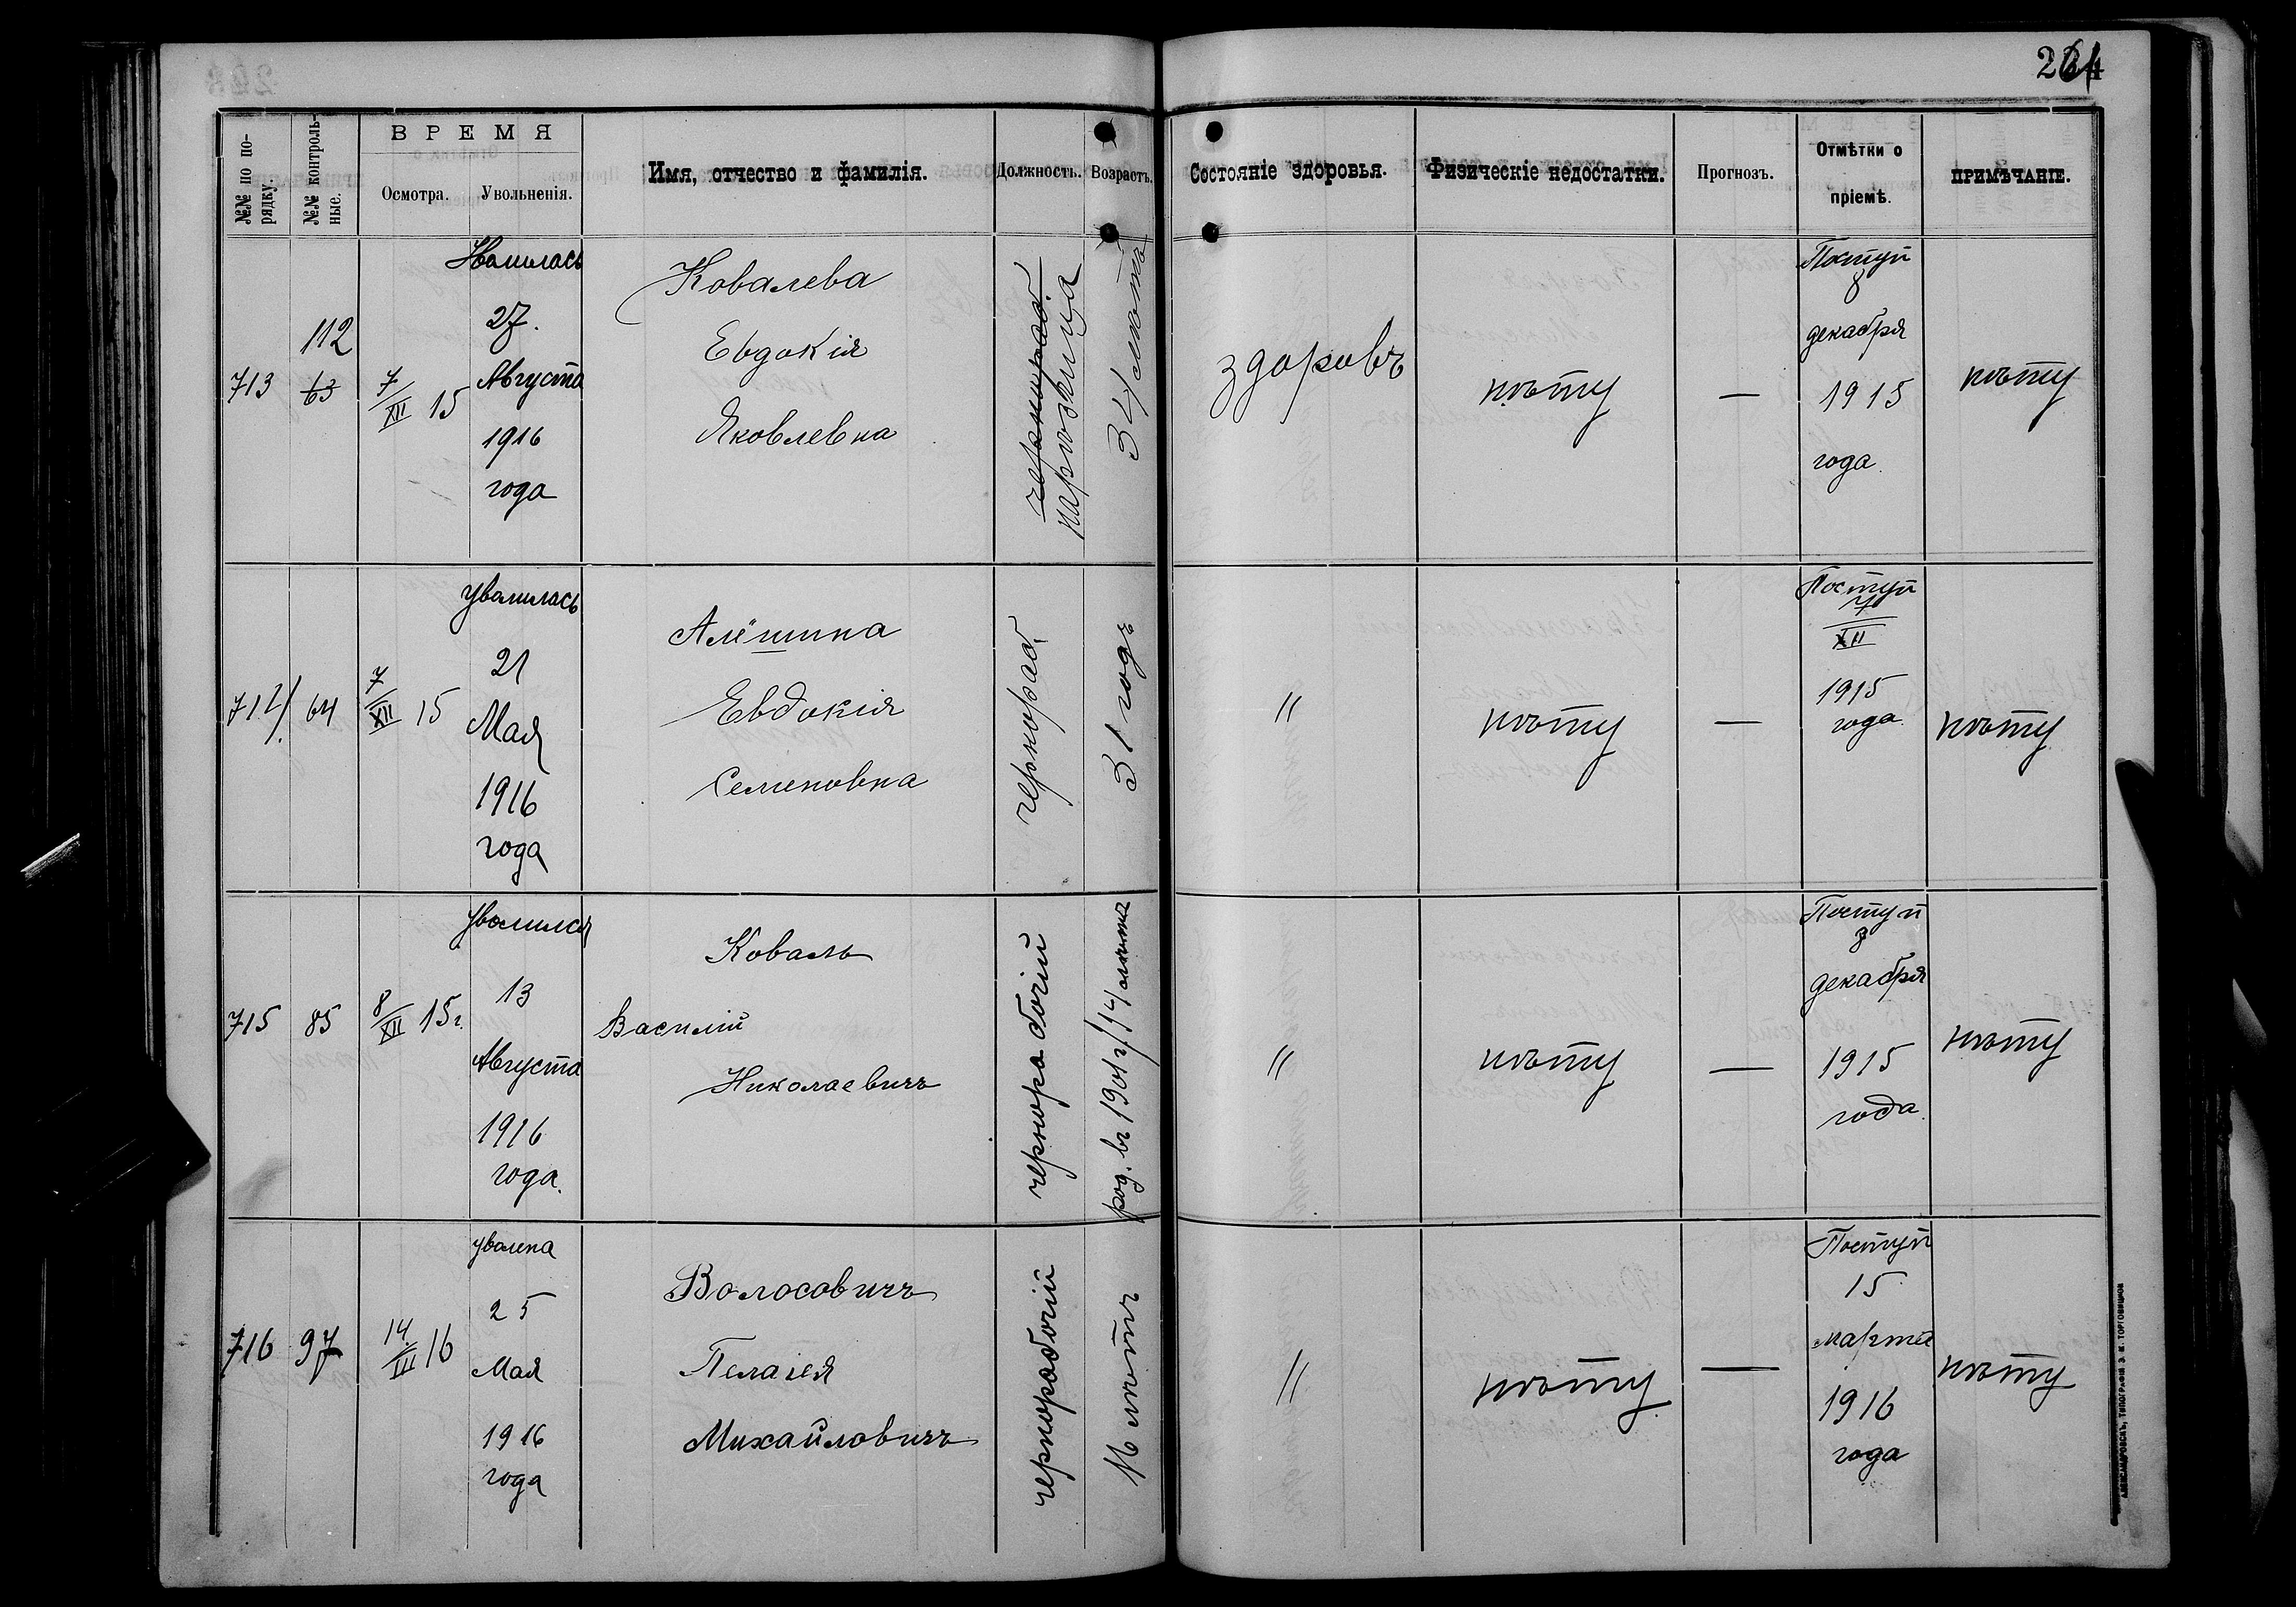 261
№№ по по-
рядку.
№№ контроль-
ные.
ВРЕМЯ
Осмотра.
Увольненія.
Имя, отчество и фамилія.
Должность.
Возрастъ.
Состояніе здоровья.
Физическіе недостатки.
Прогнозъ.
Отмѣтки о
пріемѣ.
ПРИМѢЧАНІЕ.
713
112
63
7/XII 15
Уволилась
27.
Августа
1916
года
Ковалева
Евдокія
Яковлевна
чернораб.
34 лѣтъ
здоровъ
нѣту
—
Поступ
8
декабря
1915
года.
нѣту
714.
64
7/XII 15
уволилась
21
Мая
1916
года
Алёшина
Евдокія
Семеновна
чернораб.
31 годъ
"
нѣту
—
Поступ
7
XII
1915
года.
нѣту
715
85
8/XII 15г.
уволился
13
Августа
1916
года.
Коваль
Василій
Николаевичъ
чернорабочій
род. въ 1901 г/14 лѣтъ
"
нѣту
—
Поступ
декабря
1915
года.
нѣту
716
97
14/III 16
уволена
25
Мая
1916
года
Волосовичъ
Пелагея
Михайловичъ
чернорабочій
16 лѣтъ
"
нѣту
—
Поступ
15
марта
1916
года
нѣту
АЛЕКСАНДРОВСКЪ, ТИПОГРАФІЯ Э. И. ТОРГОВИЦКОВ